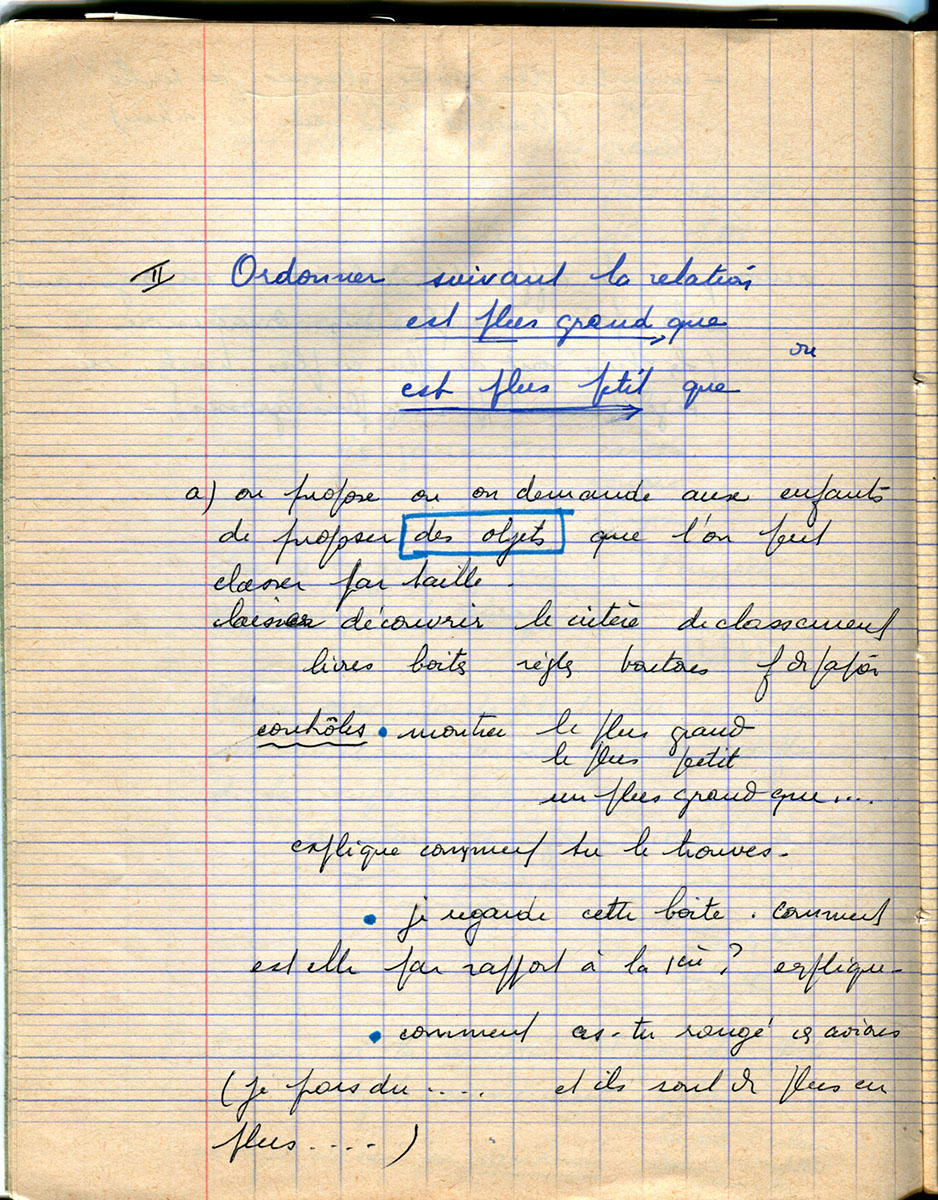 II Ordonner suivant la relation
est plus grand que
ou
est plus ptit que
a) on propose ou on demande aux enfants
de proposer des objets que l'on peut
classer par taille.
laisser découvrir le critère de classement
livres boites règles boutons f de papier
contrôles • montrer le plus grand
le plus petit
un plus grand que....
explique comment tu le trouves.
• je regarde cette boite. comment
est elle par rapport à la 1ère ? explique.
• comment as-tu rangé ces avions
(je pars du .... et ils sont de plus en
plus ....)